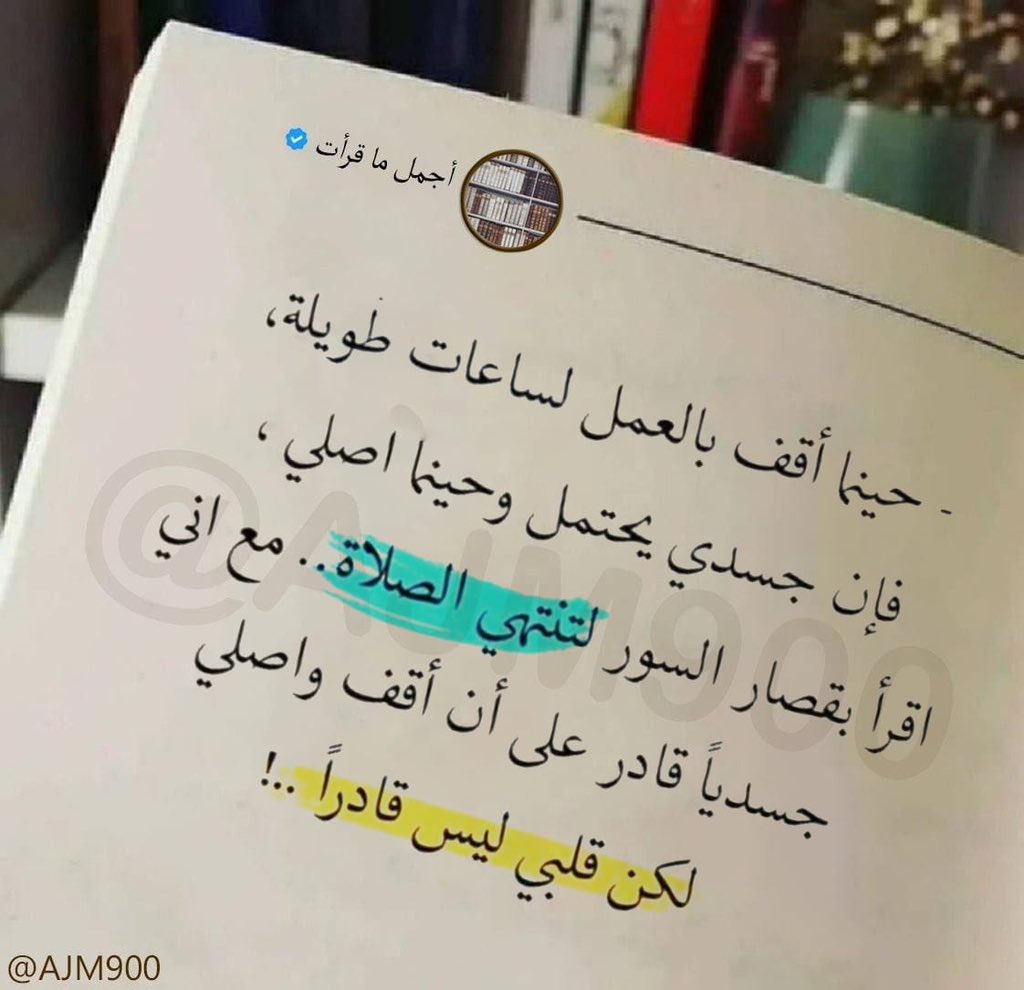 أجمل ما قرأت
- حينما أقف بالعمل لساعات طويلة،
فإن جسدي يحتمل وحينما اصلي ،
اقرأ بقصار السور لتنتهي الصلاة.. مع اني
جسدياً قادر على أن أقف واصلي
لكن قلبي ليس قادراً ..!
@AJM900
@AJM900